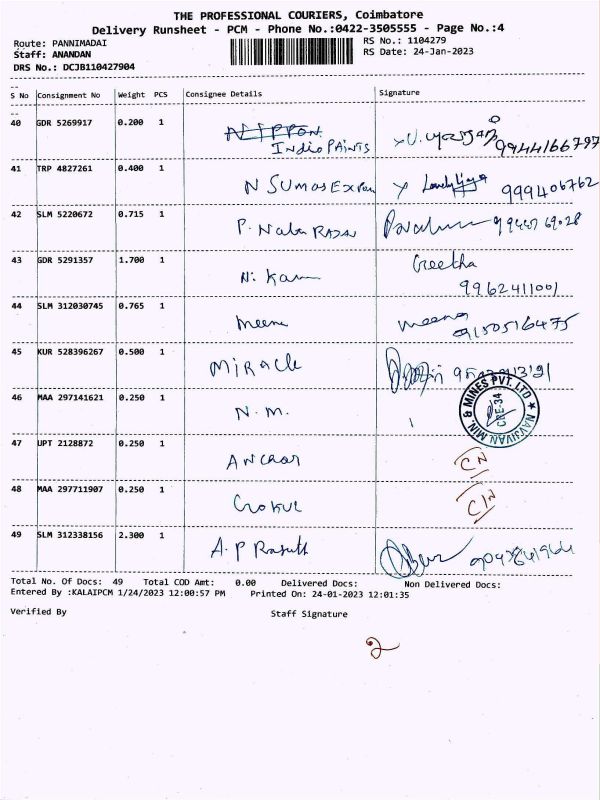 THE PROFESSIONAL COURIERS, Coimbatore
Delivery Runsheet - PCM - Phone No.:0422-3505555 - Page No.:4
Route: PANNIMADAI
RS No.: 1104279
Staff: ANANDAN
RS Date: 24-Jan-2023
DRS No.: DCJB110427904
S No Consignment No Weight PCS Consignee Details Signature
40 GDR 5269917 0.200 1 NIPPON
INDIO PAINTS 9944166797
41 TRP 4827261 0.400 1 N SUMOS 999406762
42 SLM 5220672 0.715 1
43 GDR 5291357 1.700 1 N. Geetha
9962411001
44 SLM 312030745 0.765 1 meena meena
9150516475
45 KUR 528396267 0.500 1 MIRACLE
46 MAA 297141621 0.250 1 N.M.
NAVJIVAN MIN. & MINES PVT. LTD
CBE-34
47 UPT 2128872 0.250 1 ANCHOR CN
48 MAA 297711907 0.250 1 GOKUL
49 SLM 312338156 2.300 1 A.P
Total No. Of Docs: 49 Total COD Amt: 0.00 Delivered Docs: Non Delivered Docs:
Entered By :KALAIPCM 1/24/2023 12:00:57 PM Printed On: 24-01-2023 12:01:35
Verified By Staff Signature
2